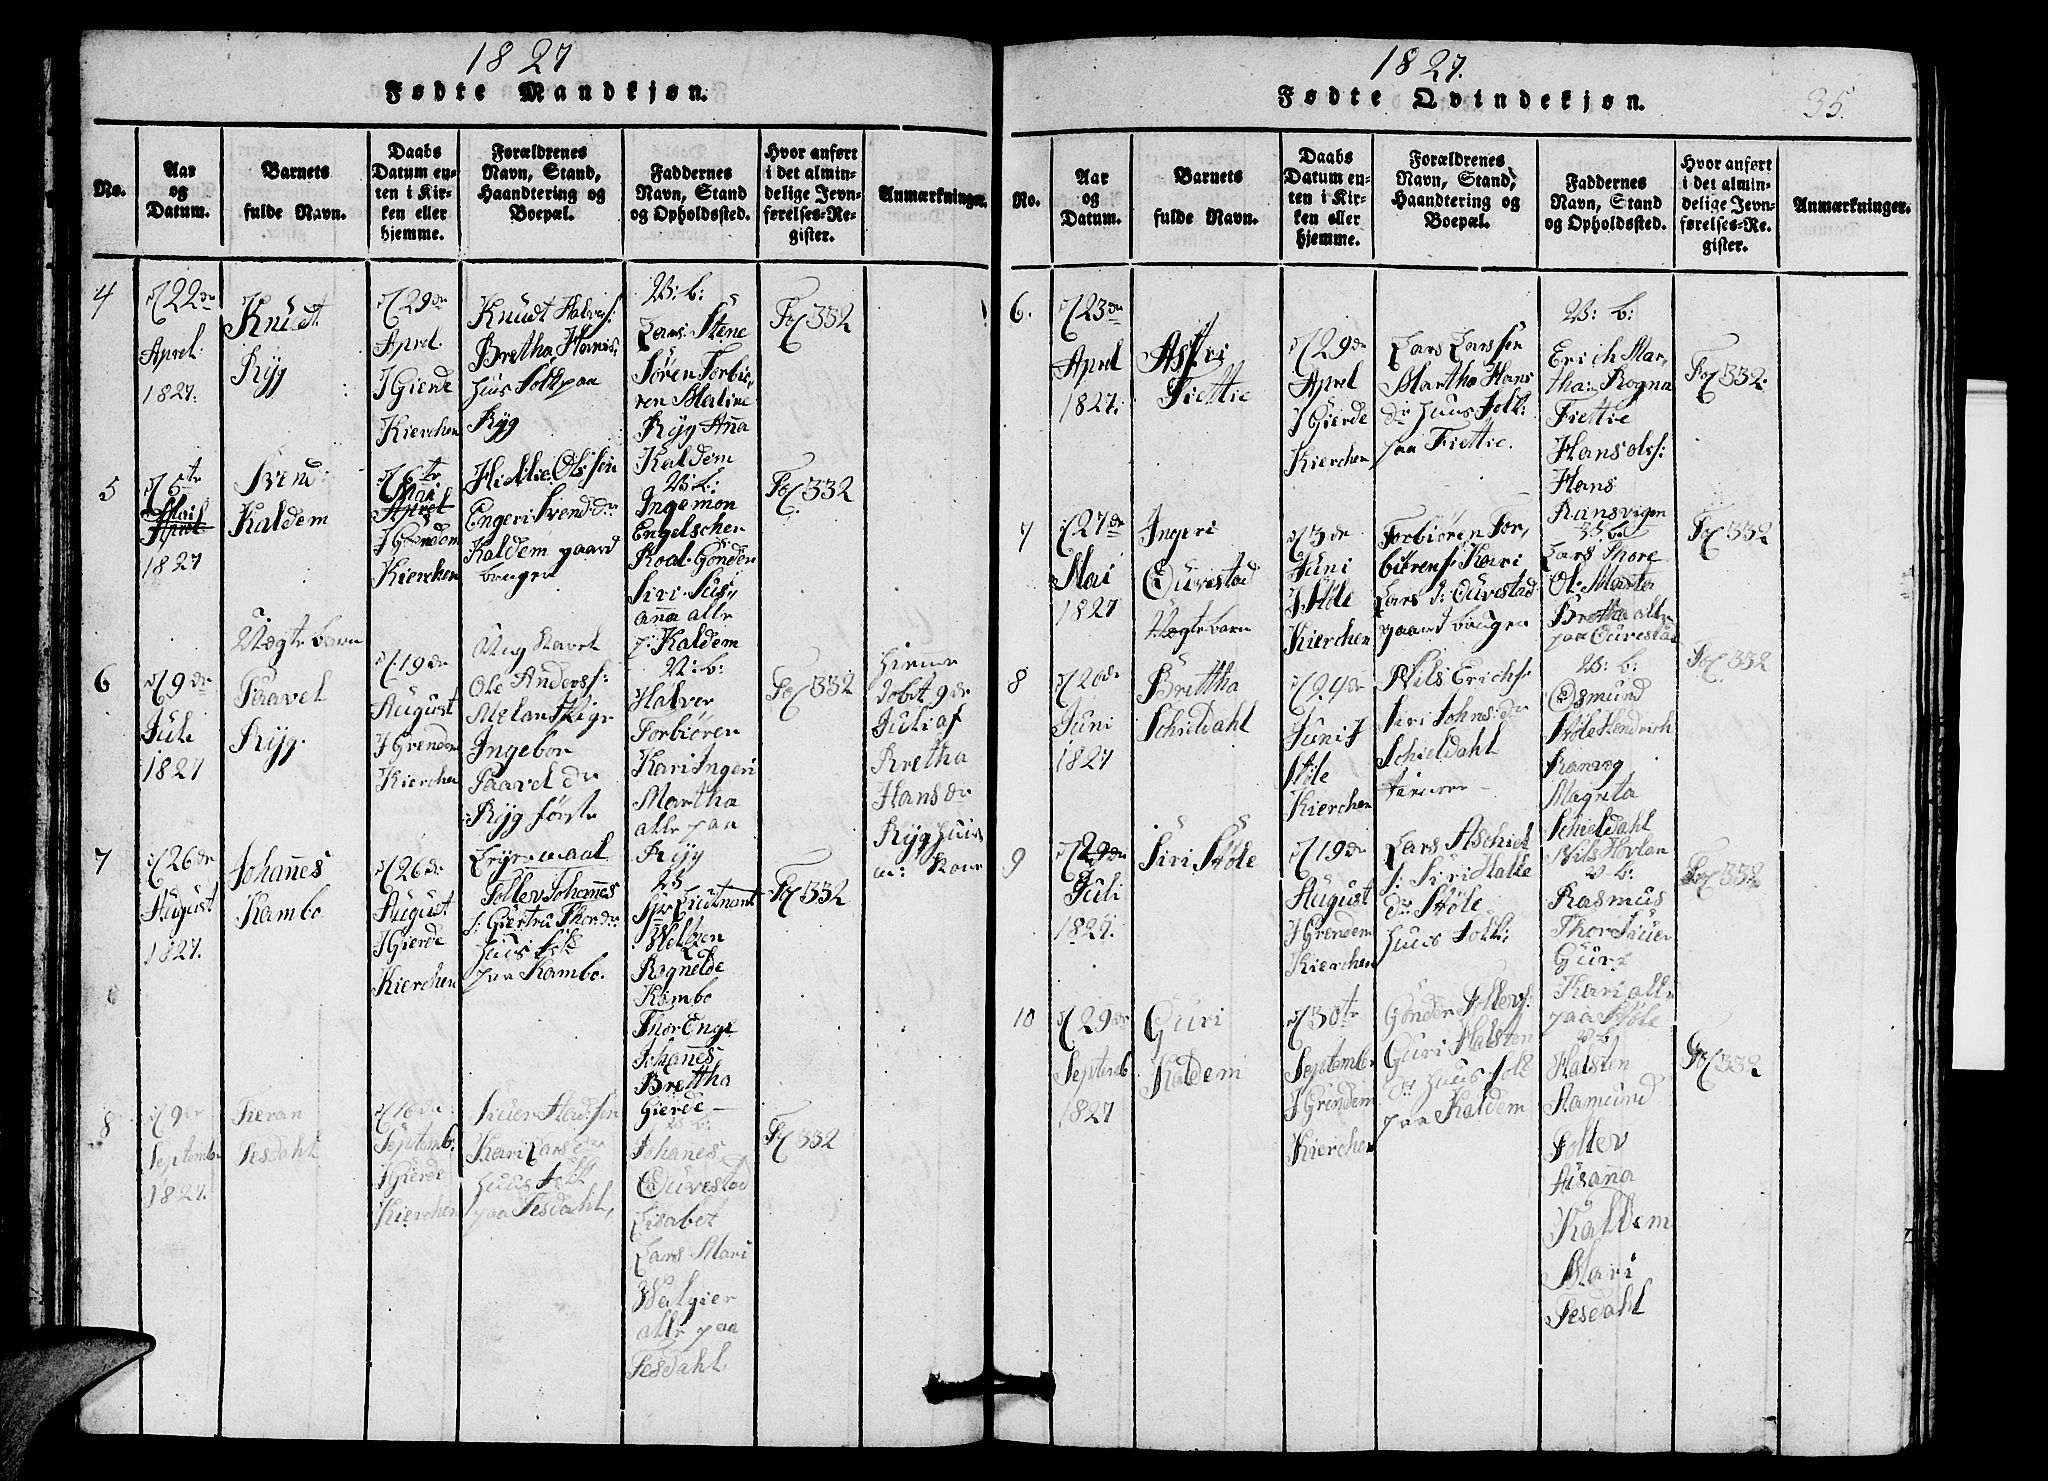 1827
Fødte Mandkjøn.
No.
Aar
og
Datum.
Barnets
fulde Navn.
Daabs
Datum en-
ten i Kir-
ken eller
hjemme.
Forældrenes
Navn, Stand,
Haandtering og
Boepæl.
Faddernes
Navn, Stand
og Opholdssted.
Hvor anført
i det almin-
delige Jevn-
førelses-Re-
gister.
Anmærkninger.
4
22de
Aprel
1827.
Knudt
Ryg
29de
Aprel
I Gierde
Kierchen
Knudt Halvers:
Bretha Hanis:
huus Folk paa
Ryg
V: b:
Lars Stene
Søren Torbiø,,
ren Maline
Ryg Anna
Kaldem
Fol 332
5
5te
Mai
Aprel
1827
Svend
Kaldem
6te
Mai
Aprel
I Grendem
Kierchen
Olssøn
Engeri Svends dr
Kaldem gaard
bruger
V: b:
Ingemon
Engelschen
Roal Gønder
Siri Sus,,
anna alle
p: Kaldem
Fol 332
6
9de
Juli
1827
Uægte barn
Taavel
Ryg
19de
August
I Grendem
Kierchen
Ung Karel
Ole Anderss:
Ingebor
Taavel dr
Ryg første
Leyermaal
V: b:
Halver
Torbiøren
Kari Ingeri
Martha
alle paa
Ryg
Fol 332
Hieme
døbt 9de
Juli af
Bretha
Hans dr
Ryg huus
m: Kone
7
26de
August
1827.
Johannes
Kambo
26de
August
I Gierde
Kierchen
Tollev Johannes
s: Giertru Thor dr
huus folk
paa Kambo.
V b
Lieutnant
Rognelde
Kambo
Thor Enge
Johannes
Brettha
Gierde
Fol 332
8
9de
September
1827.
Tesdahl
16de
Septemb.
I Gierde
Kierchen
Kari Lars dr
huus Folk
paa Tesdahl,
V b:
Johannes
Ouvestad
Lisabet
Lars Mari
Valgier
alle paa
Tesdahl
Fol 332
1827.
Fødte Qvindekjøn.
35.
No.
Aar
og
Datum.
Barnets
fulde Navn.
Daabs
Datum en-
ten i Kir-
ken eller
hjemme.
Forældrenes
Navn, Stand,
Haandtering og
Boepæl.
Faddernes
Navn, Stand
og Opholdssted.
Hvor anført
i det almin-
delige Jevn-
førelses-Re-
gister.
Anmærkninger.
6.
23de
Aprel
1827.
Astri
Fiettie
29de
Aprel
I Gierde
Kierchen
Lars Larssøn
Martha Hans
dr huus Folk:
paa Fiettie.
V: b:
Erich Mar,,
tha: Rogna
Fiettie
Hans Olss:
Hans
Ransvigen
Fol 332.
7
27de
Mai
1827
Ingeri
Ouvestad
Uægte barn
3de
Juni
I Støle
Kierchen
Torbiøren Tor,,
biørens: Kari
Lars d: Ouvestad
gaard bruger
V: b:
Lars Thore
Ol: Marta
Bretha alle
paa Ouvestad
Fol 332
8
20de
Juni
1827
Brettha
Schieldahl
24de
Juni I
Støle
Kierchen
Nils Erichs:
Siri Johns: dr
Schieldahl
V: b:
Osmund
Støle Hendrich
Ranveg
Magreta
Schieldahl
Nils Hovlan
Fol 332
9
29de
Juli
1827.
Siri Støle
19de
August
I Grendem
Kierchen
Lars Aschiel
s: Siri Halle
dr Støle
huus Folk:
V: b:
Rasmus
Thor Siver
Guri
Kari alle
paa Støle
Fol 332
10
29de
Septemb
1827
Guri
Kaldem
30te
September
I Grendem
Kierchen
Gønder Tollevs:
Guri Halsten
dr huus Folk
paa Kaldem
V b:
Halsten
Aamund
Tollev
Susanna
Kaldem
Mari
Tesdahl
Fol 332